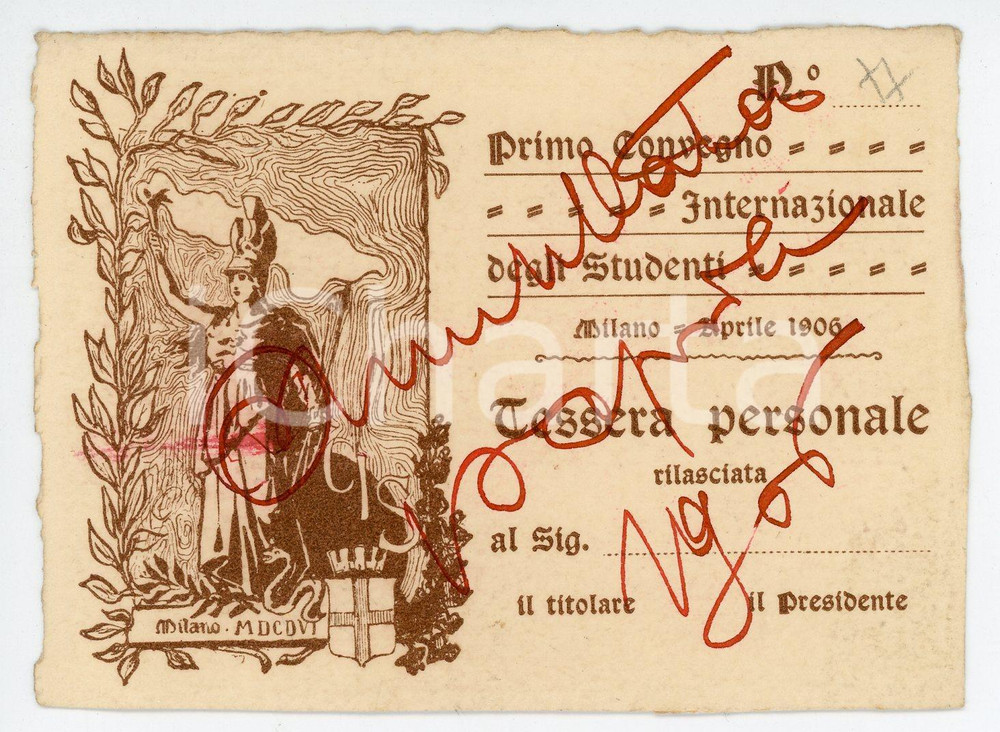 N.º
Primo Convegno = = = =
= = = = = Internazionale
degli Studenti = = = = =
Milano = Aprile 1906
Tessera personale
rilasciata
al Sig.
il titolare il Presidente
Milano · MDCDVI
CIS
Annullato